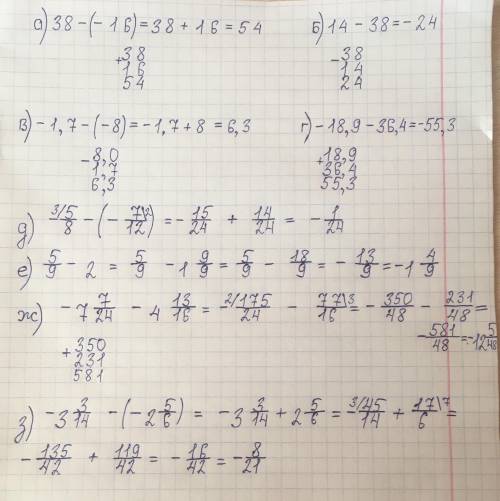 а) 38 - (- 16) = 38 + 16 = 54
б) 14 - 38 = - 24
+38
16
54
-38
14
24
в) - 1,7 - (-8) = -1,7 + 8 = 6,3
г) - 18,9 - 36,4 = -55,3
-8,0
1,7
6,3
+18,9
36,4
55,3
д) 3/5/8 - (- 7\2/12) = - 15/24 + 14/24 = - 1/24
е) 5/9 - 2 = 5/9 - 1 9/9 = 5/9 - 18/9 = - 13/9 = -1 4/9
ж) - 7 7/24 - 4 13/16 = - 2/175/24 - 77\3/16 = - 350/48 - 231/48 =
- 581/48 = -12 5/48
+350
231
581
з) -3 3/14 - (-2 5/6) = -3 3/14 + 2 5/6 = - 3/45/14 + 17\7/6 =
- 135/42 + 119/42 = - 16/42 = - 8/21